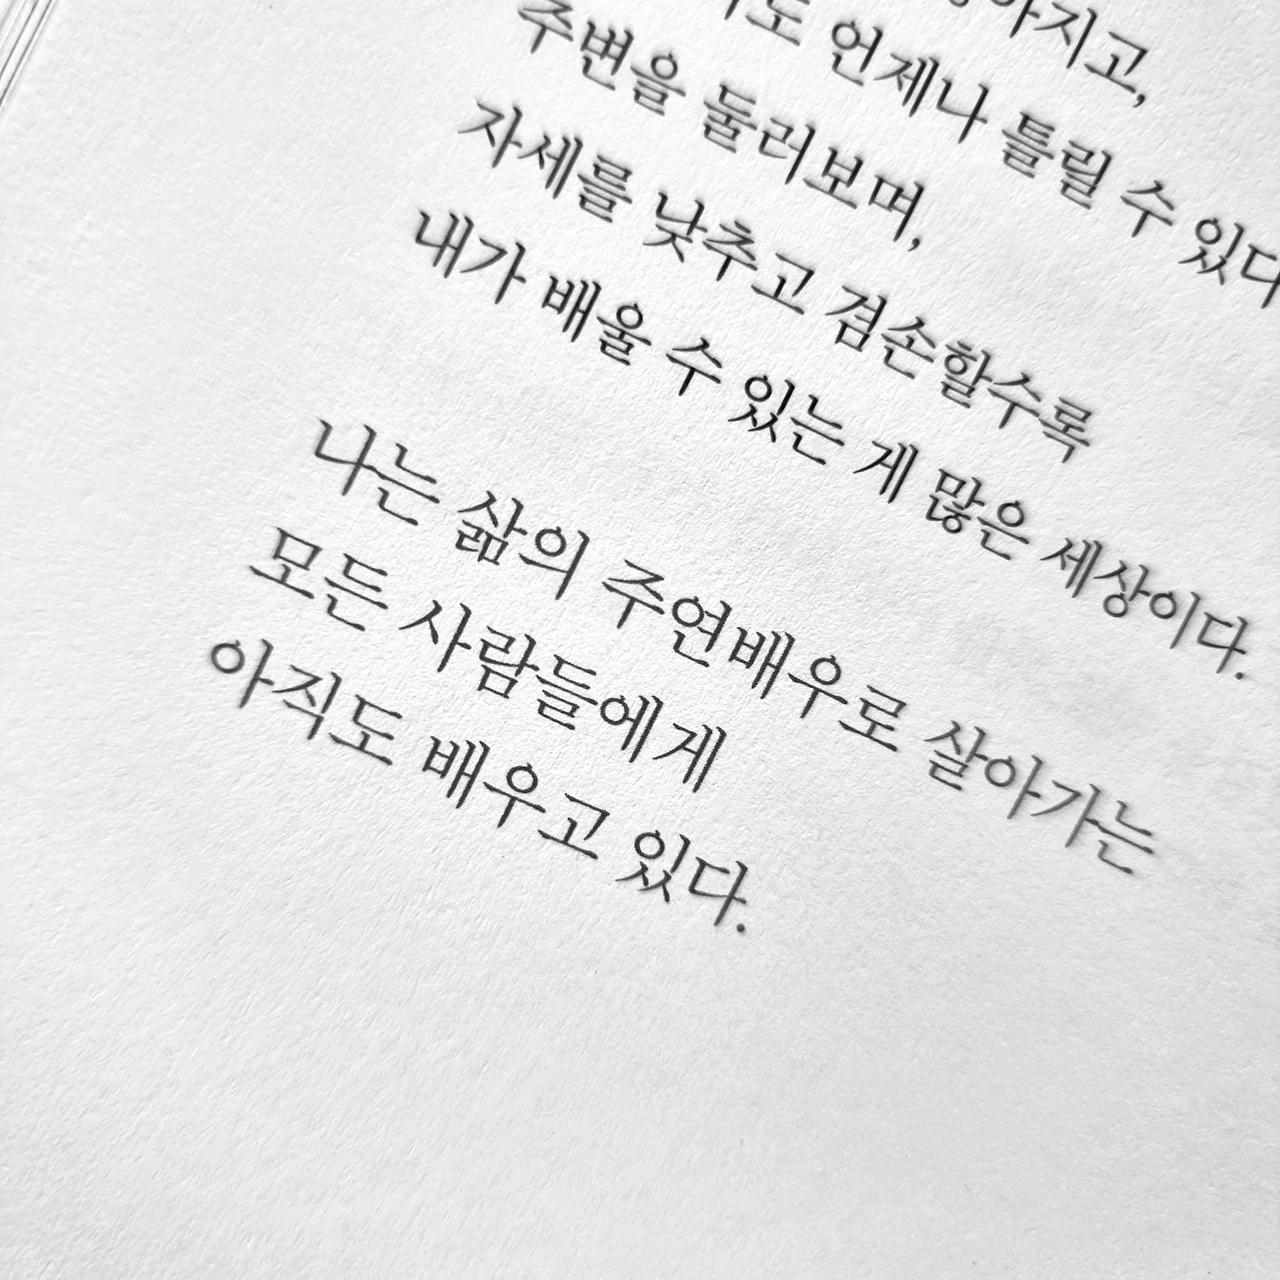 언제나 틀릴 수 있다
주변을 둘러보며,
자세를 낮추고 겸손할수록
내가 배울 수 있는 게 많은 세상이다.
나는 삶의 주연배우로 살아가는
모든 사람들에게
아직도 배우고 있다.